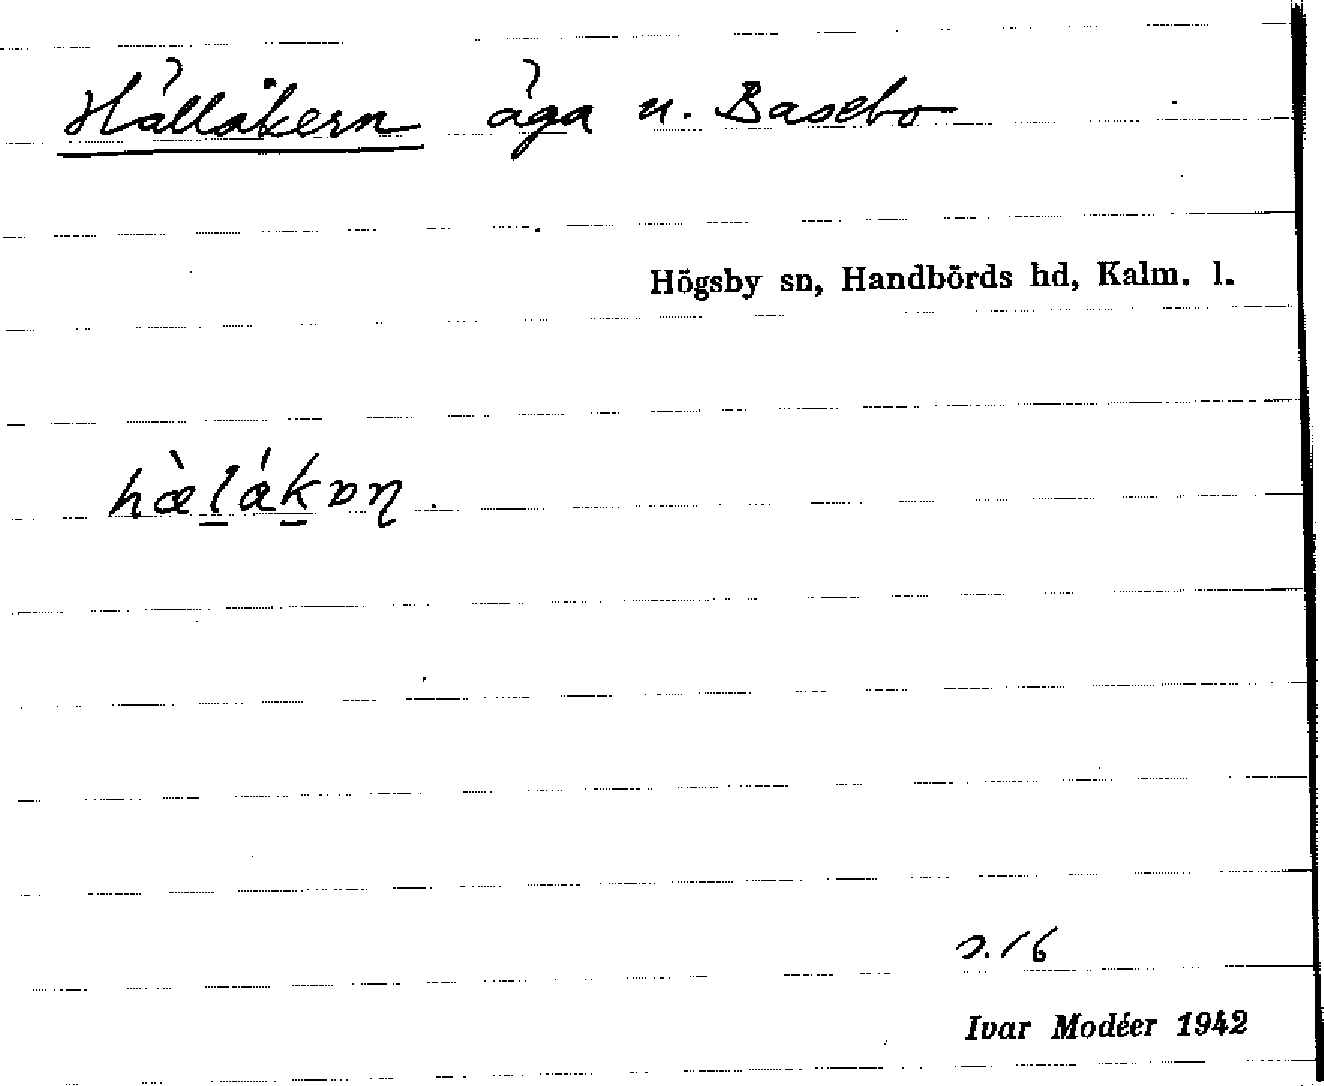 Hållåkern åga u. Basebo
Högsby sn, Handbörds hd, Kalm. l.
s. 16
Ivar Modéer 1942